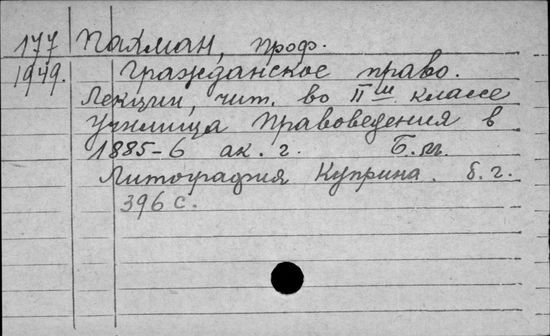 177 Пахман, проф.
1949. Гражданское право.
Лекции, чит. во II ш классе
Училища Правоведения в
1885-6 ак. г. Б.м.
Литография Куприна. б. г.
396 с.